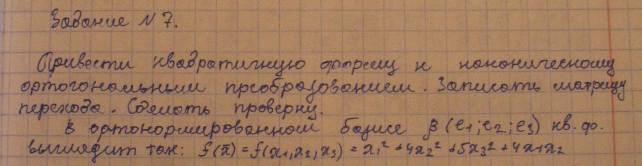 Задание № 7.
Привести квадратичную форму к каноническому
ортогональным преобразованием. Записать матрицу
перехода. Сделать проверку.
В ортонормированном базисе β(e₁; e₂; e₃) кв. ф.
выглядит так: f(x̄) = f(x₁, x₂, x₃) = x₁² + 4x₂² + 5x₃² + 4x₁x₂